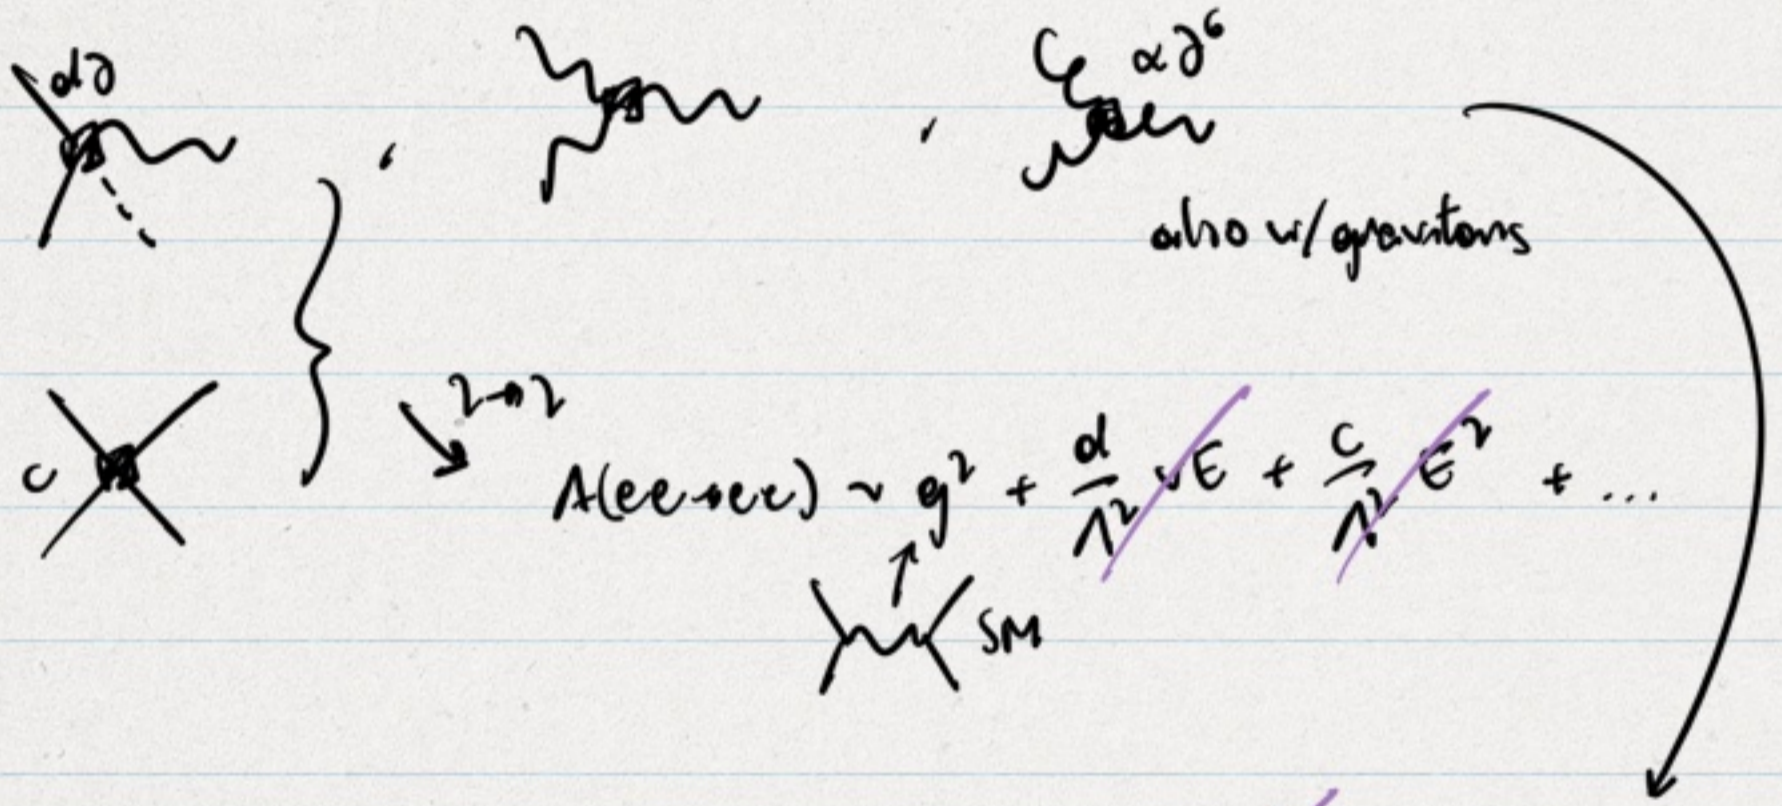 d∂
α∂⁶
also w/ gravitons
2→2
c
A(ee→ee) ~ g² + d/Λ² vE + c/Λ² E² + ...
SM